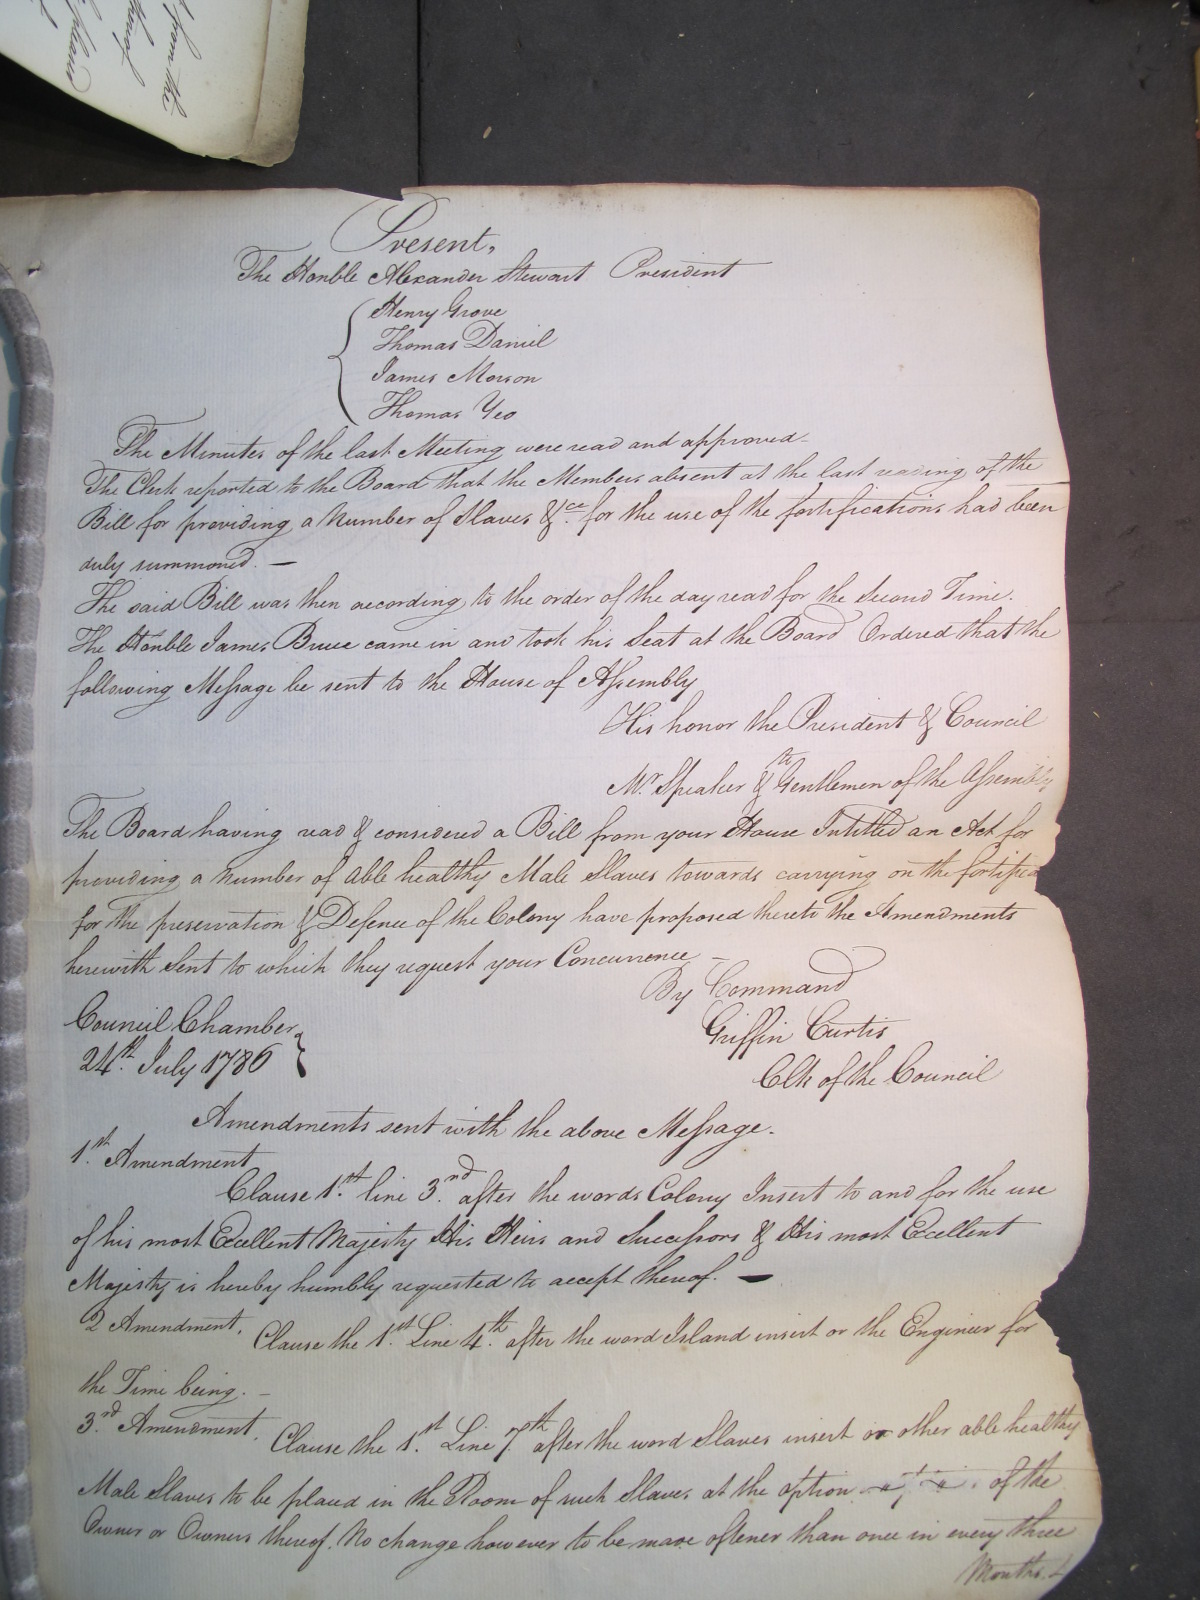 from the
thereof
Present,
The Honble Alexander Stewart President
Henry Grove
Thomas Daniel
James Morson
Thomas Yeo
The Minutes of the last Meeting were read and approved
The Clerk reported to the Board that the Members absent at the last reading of the
Bill for providing a Number of Slaves &ca. for the use of the fortifications had been
duly summoned. —
The said Bill was then according to the order of the day read for the Second Time.
The Honble James Bruce came in and took his Seat at the Board Ordered that the
following Message be sent to the House of Assembly
His honor the President & Council
th
Mr. Speaker & Gentlemen of the Assembly
The Board having read & considered a Bill from your House Intitled an Act for
providing a Number of able healthy Male Slaves towards carrying on the fortifica
for the preservation & Defence of the Colony have proposed thereto the Amendments
herewith Sent to which they request your Concurrence —
By Command
Council Chamber
Griffin Curtis
24th. July 1786
Clk of the Council
Amendments sent with the above Message.
1st. Amendment
Clause 1st. line 3nd. after the words Colony Insert to and for the use
of his most Excellent Majesty His Heirs and Successors & His most Excellent
Majesty is hereby humbly requested to accept thereof. —
2 Amendment.
Clause the 1st. Line 4th. after the word Island insert or the Engineer for
the Time being. —
3nd. Amendment.
Clause the 1st. Line 7th. after the word Slaves insert or other able healthy
Male Slaves to be placed in the Room of such Slaves at the option of the
Owner or Owners thereof. No change however to be made oftener than once in every three
Months.